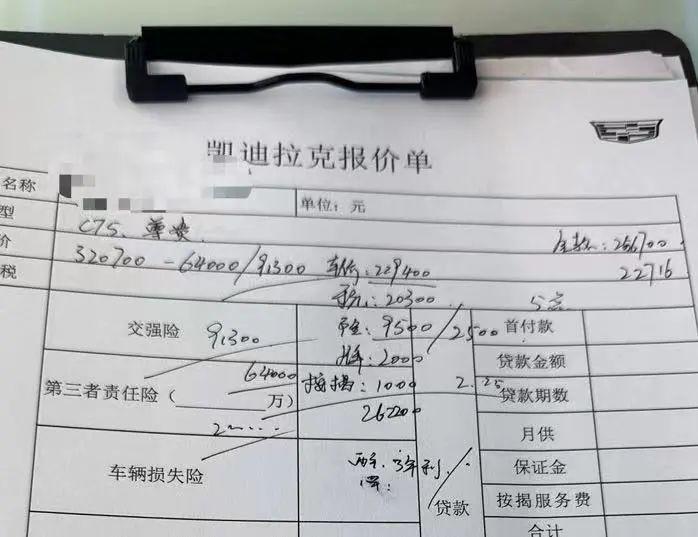 凯迪拉克报价单
名称
单位：元
型
CT5、尊
价
320700 - 64000/91300 车价：229400
全款：256700
税
税：20300
22716
交强险
91300
险：9500
/2500
首付款
牌：2000
贷款金额
64000
第三者责任险（ 万）
按揭：1000
2.25
贷款期数
262200
月供
车辆损失险
保证金
贷款
按揭服务费
合计